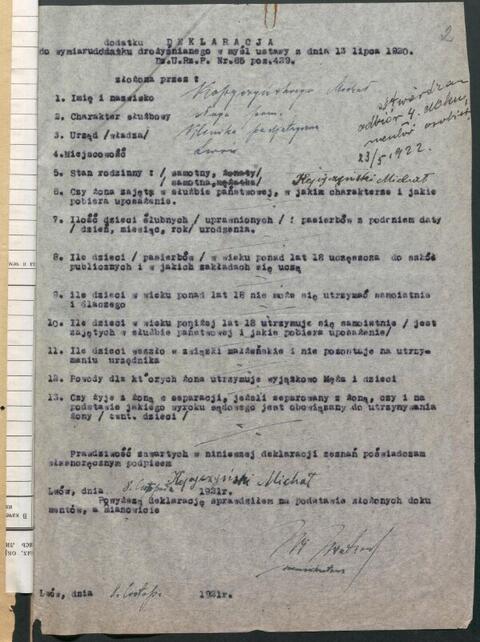 2
dodatku DEKLARACJA
do wymiarudodatku drożyźnianego w myśl ustawy z dnia 13 lipca 1920.
Dz.U.Rz.P. Nr.65 poz.429.
złożona przez :
1. Imię i nazwisko Michał
2. Charakter służbowy
3. Urząd /władza/
4.Miejscowość Lwów
stwierdzam
odbiór 4 doku,
mentów osobist
23/5 1922.
Michał
5. Stan rodzinny : / samotny, żonaty/
/ samotna, mężatka/
6. Czy żona zajęta w służbie państwowej, w jakim charakterze i jakie
pobiera uposażenie.
7. Ilość dzieci ślubnych / uprawnionych / : pasierbów z podaniem daty
/ dzień, miesiąc, rok/ urodzenia.
8. Ile dzieci / pasierbów / w wieku ponad lat 18 uczęszcza do szkół
publicznych i w jakich zakładach się uczą
9. Ile dzieci w wieku ponad lat 18 nie może się utrzymać samoistnie
i dlaczego
10. Ile dzieci w wieku poniżej lat 18 utrzymuje się samoistnie / jest
zajętych w służbie państwowej i jakie pobiera uposażenie/
11. Ile dzieci weszło w związki małżeńskie i nie pozostaje na utrzy-
maniu urzędnika
12. Powody dla których żona utrzymuje wyjątkowo Męża i dzieci
13. Czy żyje z żoną w separacji, jeżeli separowany z żoną, czy i na
podstawie jakiego wyroku sądowego jest obowiązany do utrzymywania
żony / ewnt. dzieci /
Prawdziwość zawartych w niniejszej deklaracji zeznań poświadczam
własnoręcznym podpisem
Michał
Lwów, dnia 1921r.
Powyższą deklarację sprawdziłem na podstawie złożonych doku
mentów, a mianowicie
Lwów, dnia 1921r.